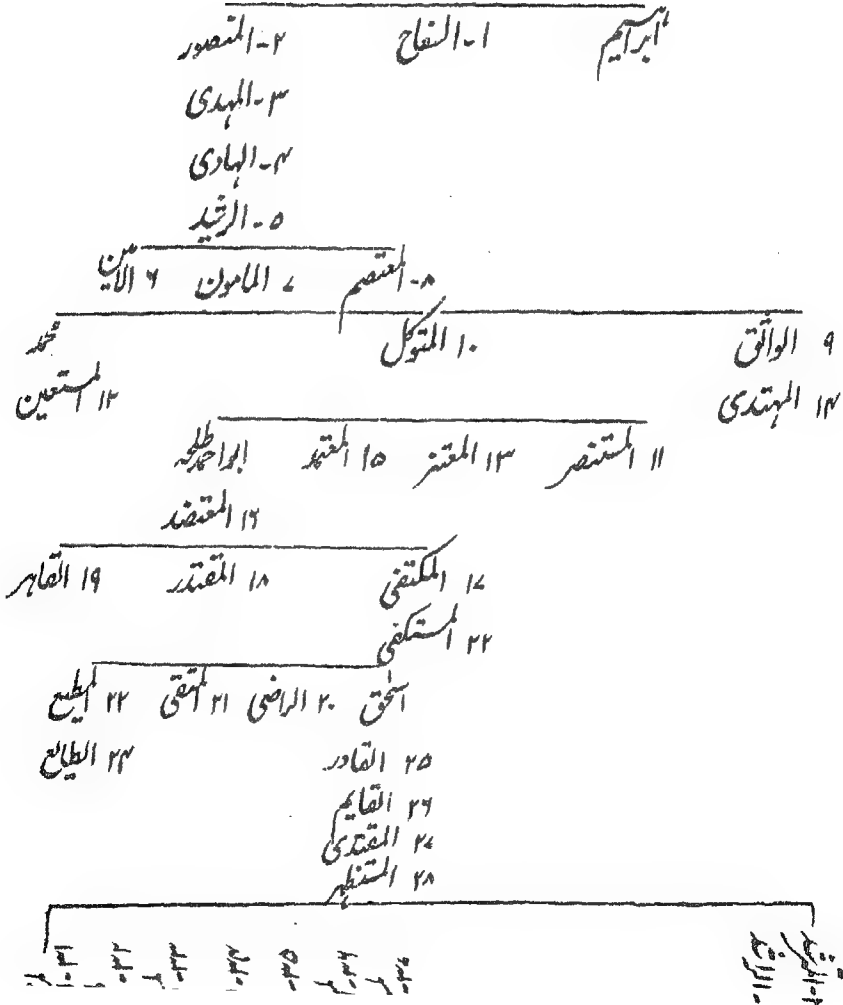 ابراہیم ۱-السفاح ۲-المنصور
۳-المہدی
۴-الہادی
۵-الرشید
۸-المعتصم ۷ المامون ۶ الامین
۹ الواثق ۱۰ المتوکل محمد
۱۴ المہتدی ۱۲ المستعین
۱۱ المستنصر ۱۳ المعتز ۱۵ المعتمد ابو احمد طلحہ
۱۶ المعتضد
۱۷ المکتفی ۱۸ المقتدر ۱۹ القاہر
۲۲ المستکفی
اسحٰق ۲۰ الراضی ۲۱ المتقی ۲۲ المطیع
۲۵ القادر ۲۴ الطایع
۲۶ القایم
۲۷ المقتدی
۲۸ المستظہر